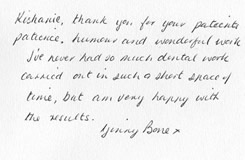 Kishanie, thank you for your patients
patience, humour and wonderful work
I've never had so much dental work
carried out in such a short space of
time, but am very happy with
the results.
Jenny Bone x